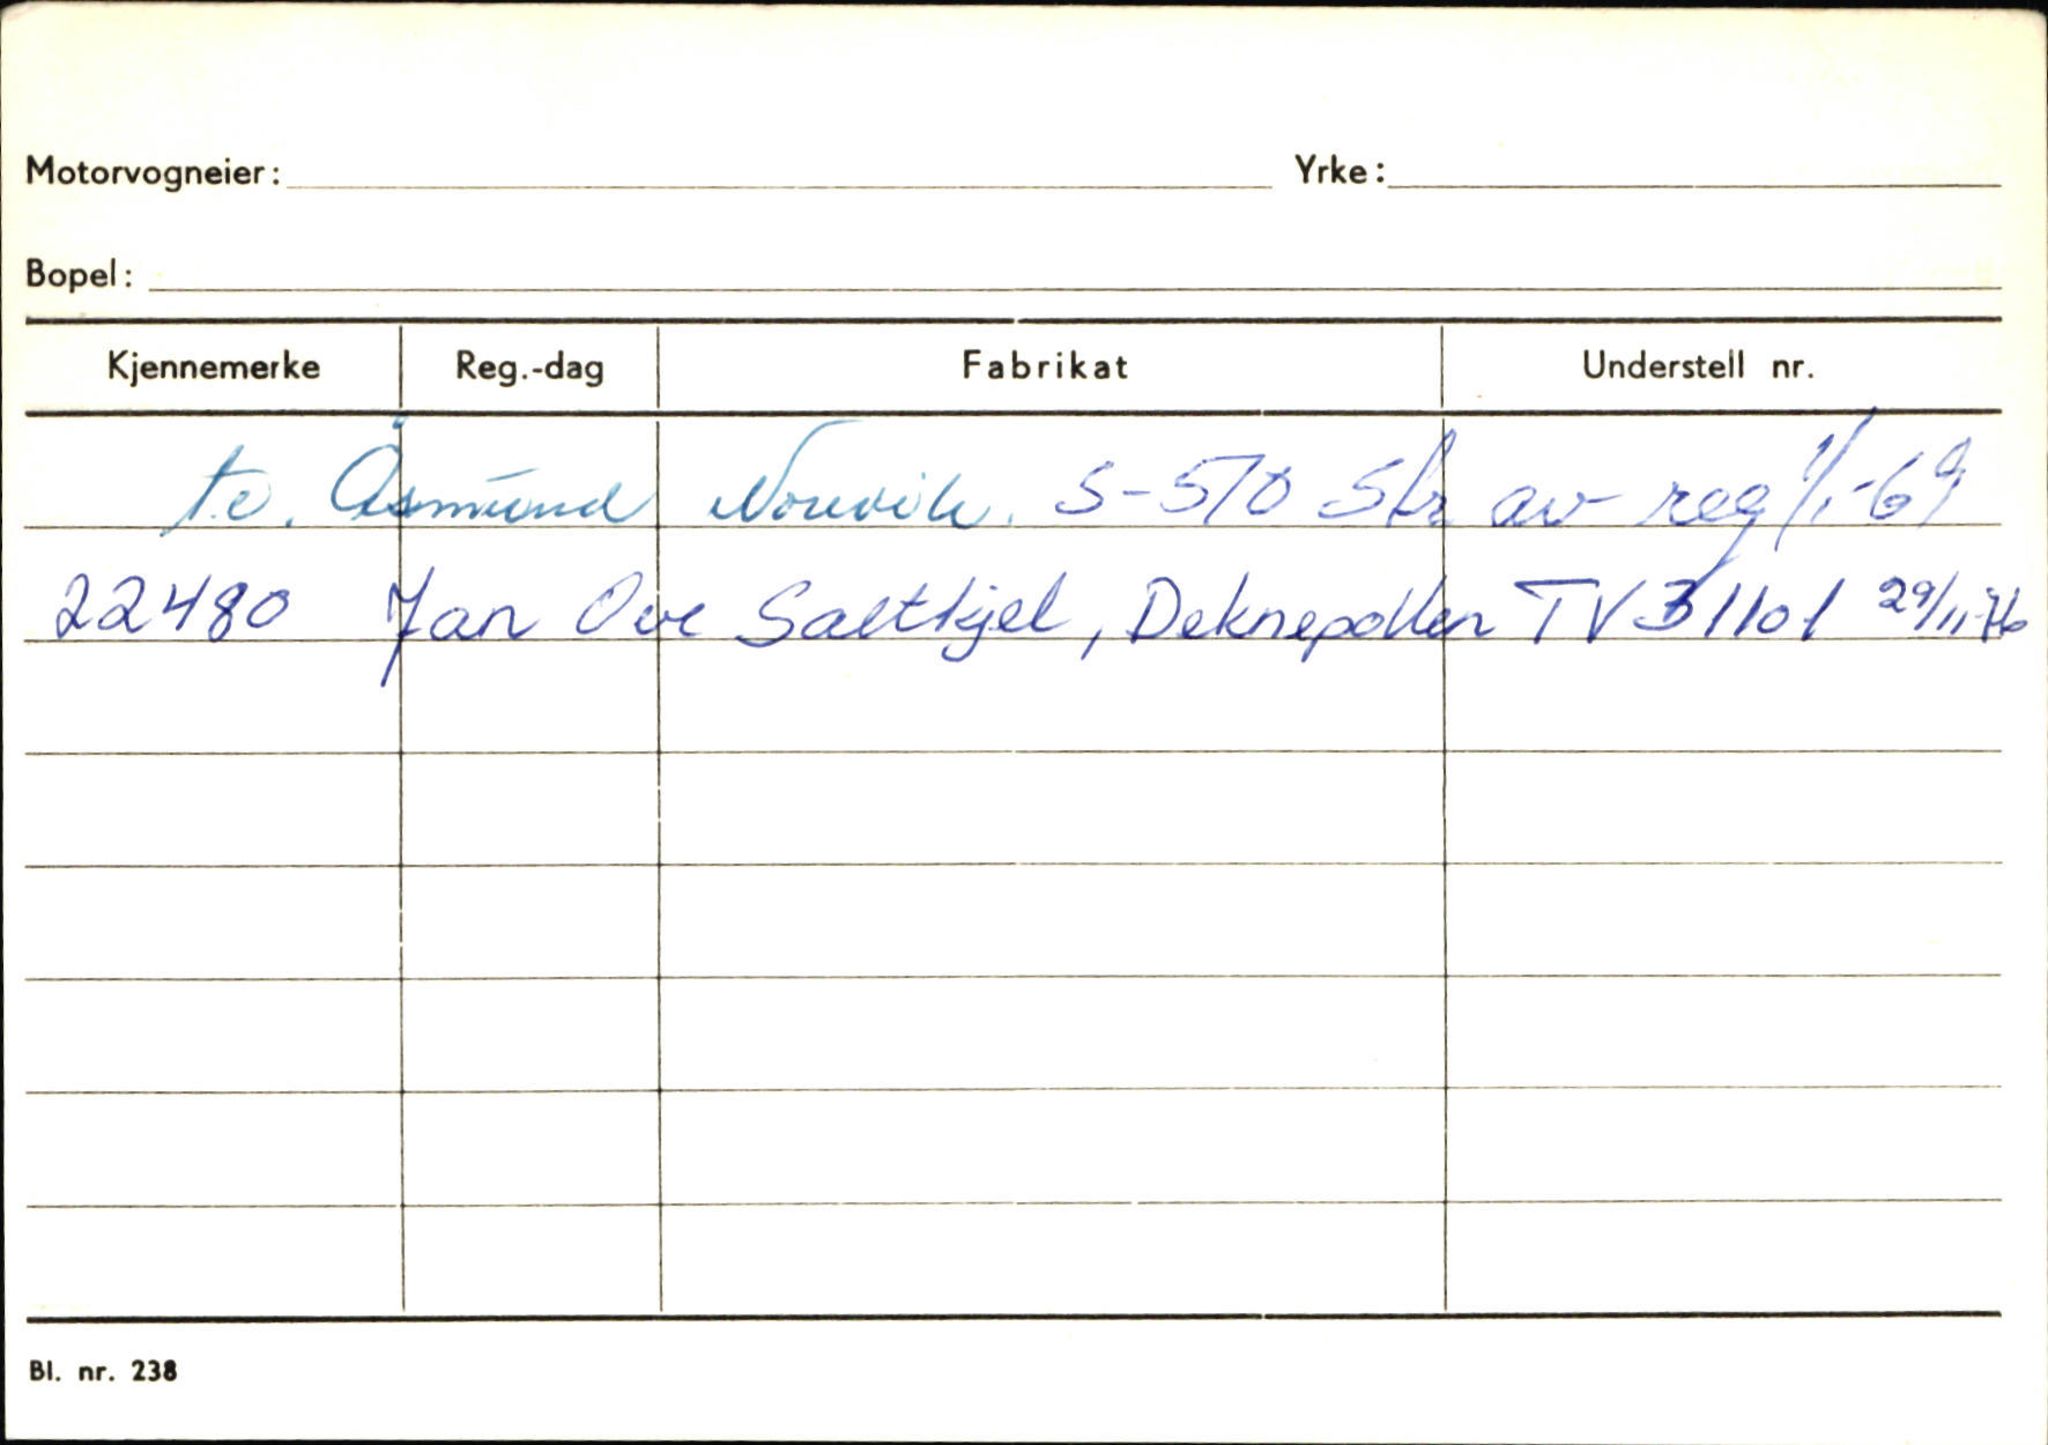 Motorvogneier: Yrke:
Bopel:
Kjennemerke Reg.-dag Fabrikat Understell nr.
Åsmund S-570 Slr av reg 1/1-69
22480 Jan Ove Saltkjel, Deknepollen TV31101 29/11-76
Bl. nr. 238